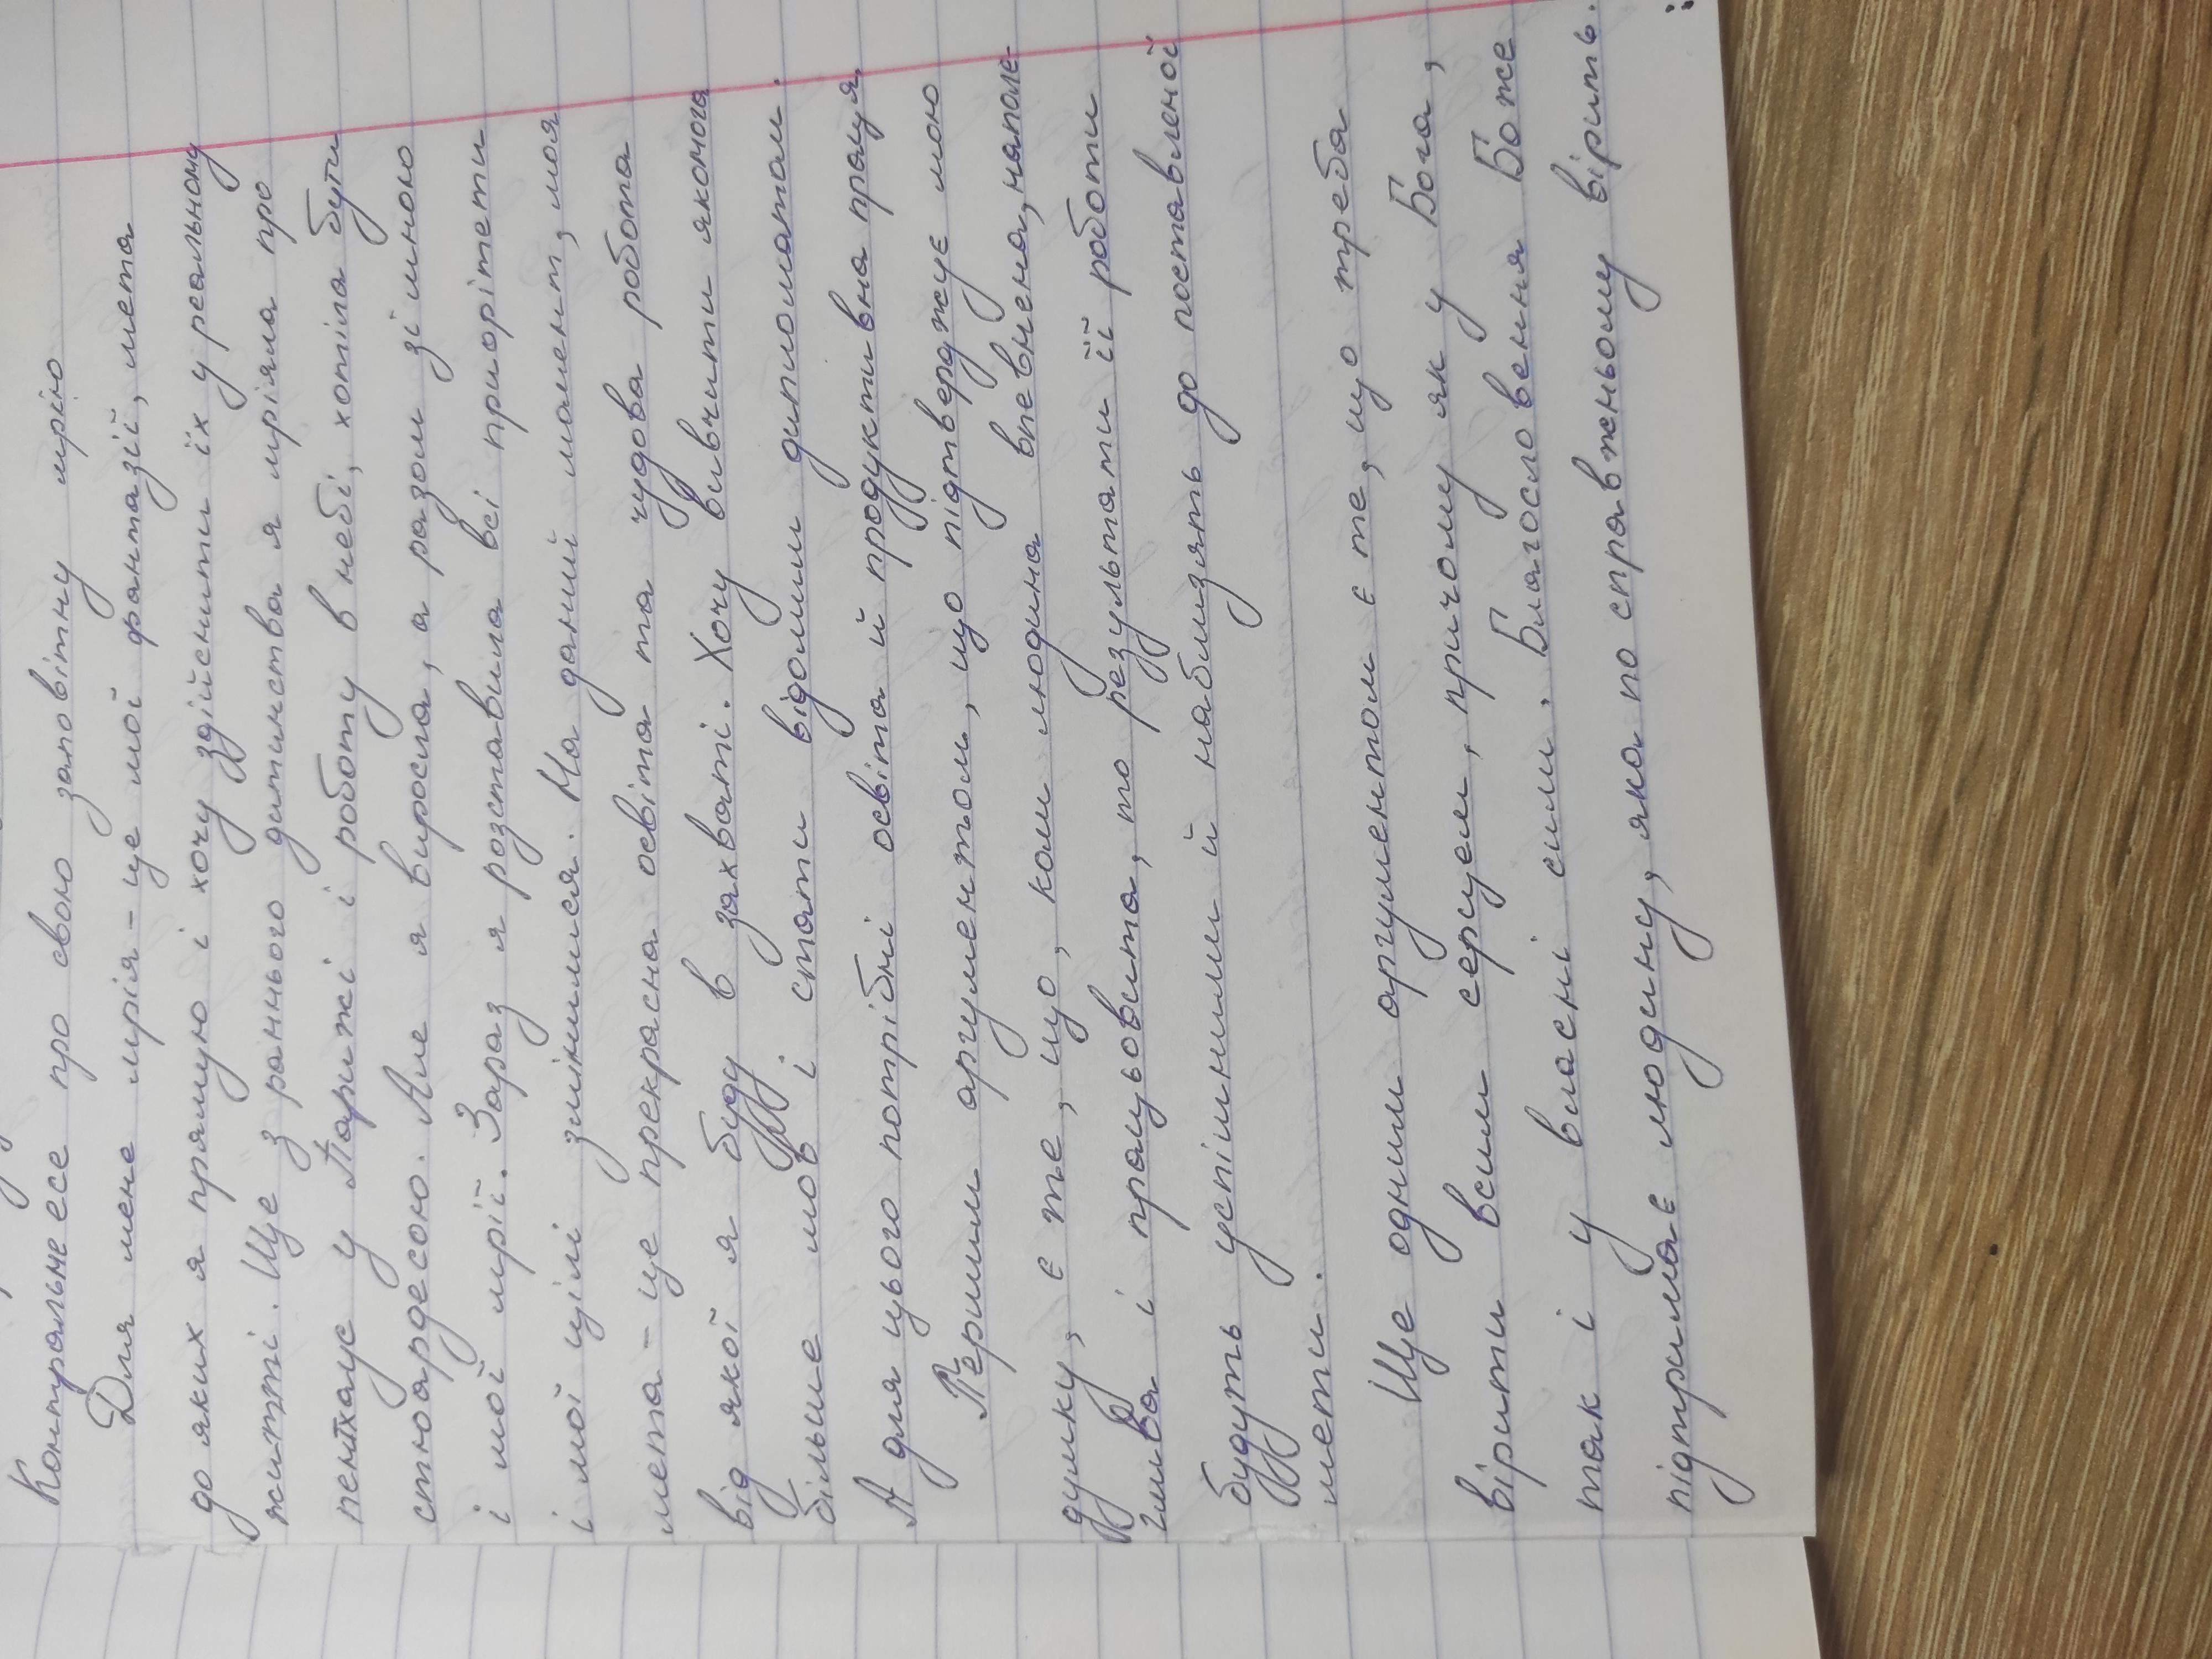 Контрольне есе про свою заповітну мрію
Для мене мрія - це мої фантазії, мета
до яких я прямую і хочу здійснити їх у реальному
житті. Ще з раннього дитинства я мріяла про
пентхаус у Парижі і роботу в небі, хотіла бути
стюардесою. Але я виросла, а разом зі мною
і мої мрії. Зараз я розставила всі приорітети
і мої цілі змінилися. На даний момент, моя
мета - це прекрасна освіта та чудова робота
від якої я буду в захваті. Хочу вивчити якомога
більше мов і стати відомим дипломатом.
А для цього потрібні освіта й продуктивна праця.
Першим аргументом, що підтверджує мою
думку, є те, що, коли людина впевнена, наполе-
глива і працьовита, то результати її роботи
будуть успішними й наблизять до поставленої
мети.
Ще одним аргументом є те, що треба
вірити всим серцем, причому як у Бога,
так і у власні сили. Благословення Боже
підтримає людину, яка по справжньому вірить.